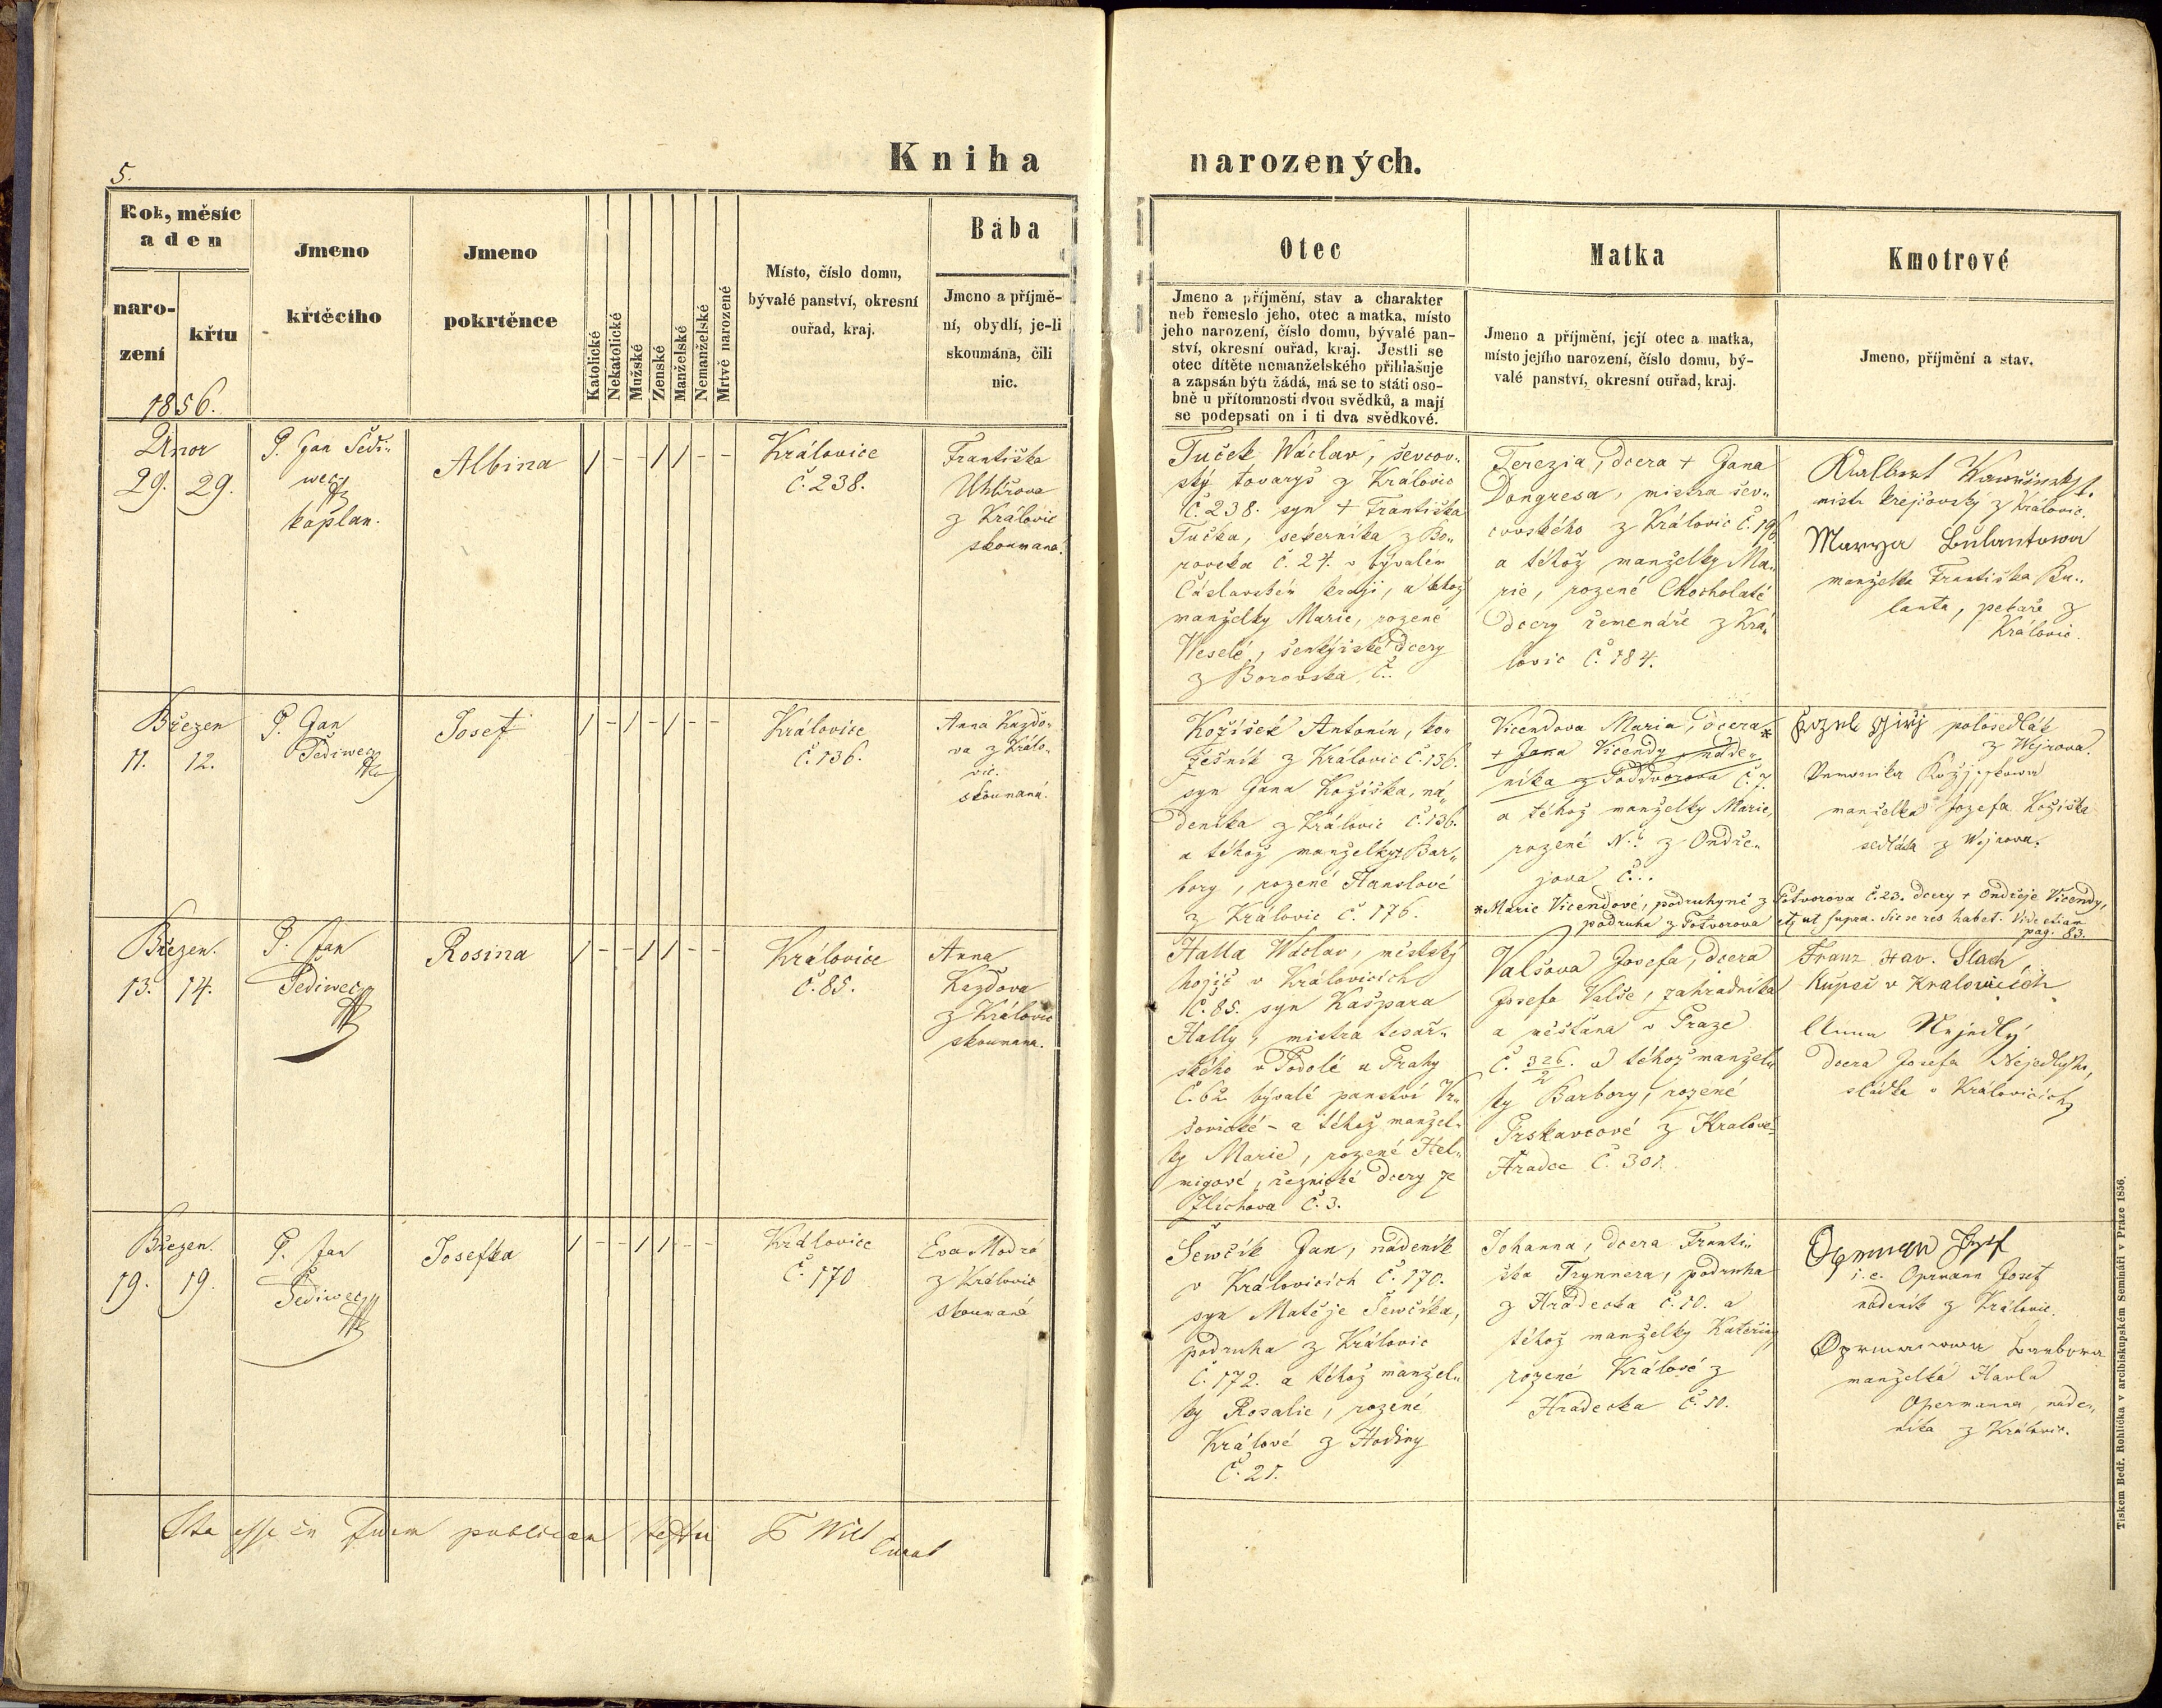 5.
Kniha narozených.
Rok, měsíc
a den
naro-
zení
křtu
1856.
Jmeno
křtěcího
Jmeno
pokrtěnce
Katolické
Nekatolické
Mužské
Ženské
Manželské
Nemanželské
Mrtvě narozené
Místo, číslo domu,
bývalé panství, okresní
ouřad, kraj.
Bába
Jmeno a příjmě-
ní, obydlí, je-li
skoumána, čili
nic.
Otec
Jmeno a příjmění, stav a charakter
neb řemeslo jeho, otec a matka, místo
jeho narození, číslo domu, bývalé pan-
ství, okresní ouřad, kraj. Jestli se
otec dítěte nemanželského přihlašuje
a zapsán býti žádá, má se to státi oso-
bně u přítomnosti dvou svědků, a mají
se podepsati on i ti dva svědkové.
Matka
Jmeno a příjmění, její otec a matka,
místo jejího narození, číslo domu, bý-
valé panství, okresní ouřad, kraj.
Kmotrové
Jmeno, příjmění a stav.
Únor
29. 29.
P. Jan Šedi-
wec
kaplan.
Albina
/ - - / / - -
Královice
č. 238.
Františka
Uhlířova
z Králović
skoumaná.
Tuček Wáclav, ševcov-
ský tovaryš z Králović
Č. 238. syn + Františka
Tučka, sekerníka z Bo-
rovska č. 24. v bývalém
Čáslavském kraji, a téhož
manželky Marie, rozené
Weselé, šenkýřské dcery
z Borovska č.
Terezia, dcera + Jana
Dongresa, mistra šev-
covského z Králović č. 196
a téhož manželky Ma-
rie, rozené Chocholaté
dcery řemenáře z Krá-
lović č. 184.
mistr krejčovský z Králović.
Marya Bulantowa
manželka Františka Bu-
lanta, pekaře z
Králović.
Březen
11. 12.
P. Jan
Šediwec
Josef
/ - / - / - -
Královice
č. 136.
Anna Kazdo-
va z Králo-
vić.
skoumaná.
Kožíšek Antonín, ko-
žešník z Králović č. 136.
syn Jana Kožíška, ná-
deníka z Králović č. 136.
a téhož manželky + Bar-
bory, rozené Hanslové
z Králović č. 176.
Vicendova Maria, dcera *
+ Jana Vicendy, náde-
níka z Poddvorova č. 7.
a téhož manželky Marie,
rozené N. z Ondře-
jova č...
* Marie Vicendové, podruhyně z Potvorova č. 23. dcery + Ondřeje Vicendy,
podruha z Potvorova etc ut supra. Sic se res habet. Vide etiam
pag. 83.
polosedlák
z Wejrova.
manželka Jozefa Kožíška
sedláka z Wejrova.
Březen.
13. 14.
P. Jan
Šediwec
Rosina
/ - - / / - -
Královice
č. 85.
Anna
Kazdova
z Králović
skoumaná.
Halla Wáclav, městský
hojič v Královicích
Č. 85. syn Kašpara
Hally, mistra tesař-
ského v Podolé u Prahy
č. 62. bývalé panství Vr-
šovické - a téhož manžel-
ky Marie, rozené Hel-
migové, řeznické dcery ze
Zlíchova č. 3.
Valšova Josefa, dcera
Josefa Valše, zahradníka
a měšťana v Praze
Č. 326/2. a téhož manžel-
ky Barbory, rozené
Prskavcové z Králové-
Hradce č. 301.
Franz Xav. Slach
Kupec v Kralowicích
Anna Nejedlý
dcera Josefa Nejedlýho,
sládka v Královicích
Březen.
19. 19.
P. Jan
Šediwec
Josefka
/ - - / / - -
Královice
Č. 170
Eva Modrá
z Králović
skoumaná
Šewčík Jan, nádeník
v Královicích č. 170.
syn Matěje Šewčíka,
podruha z Králović
č. 172. a téhož manžel-
ky Rosalie, rozené
Králové z Hodiny
Č. 21.
Johanna, dcera Franti-
ška Trynnera, podruha
z Hrádecka č. 10. a
téhož manželky Kateřiny
rozené Králové z
Hrádecka č. 10.
Oprman Jozef
i. e. Oprmann Josef
nádeník z Králović.
Oprmanowa Barbora
manželka Havla
Opermanna, náde-
níka z Králović.
Ita esse in fidem publicam testor
Tiskem Bedř. Rohlíčka v arcibiskupském Semináři v Praze 1856.